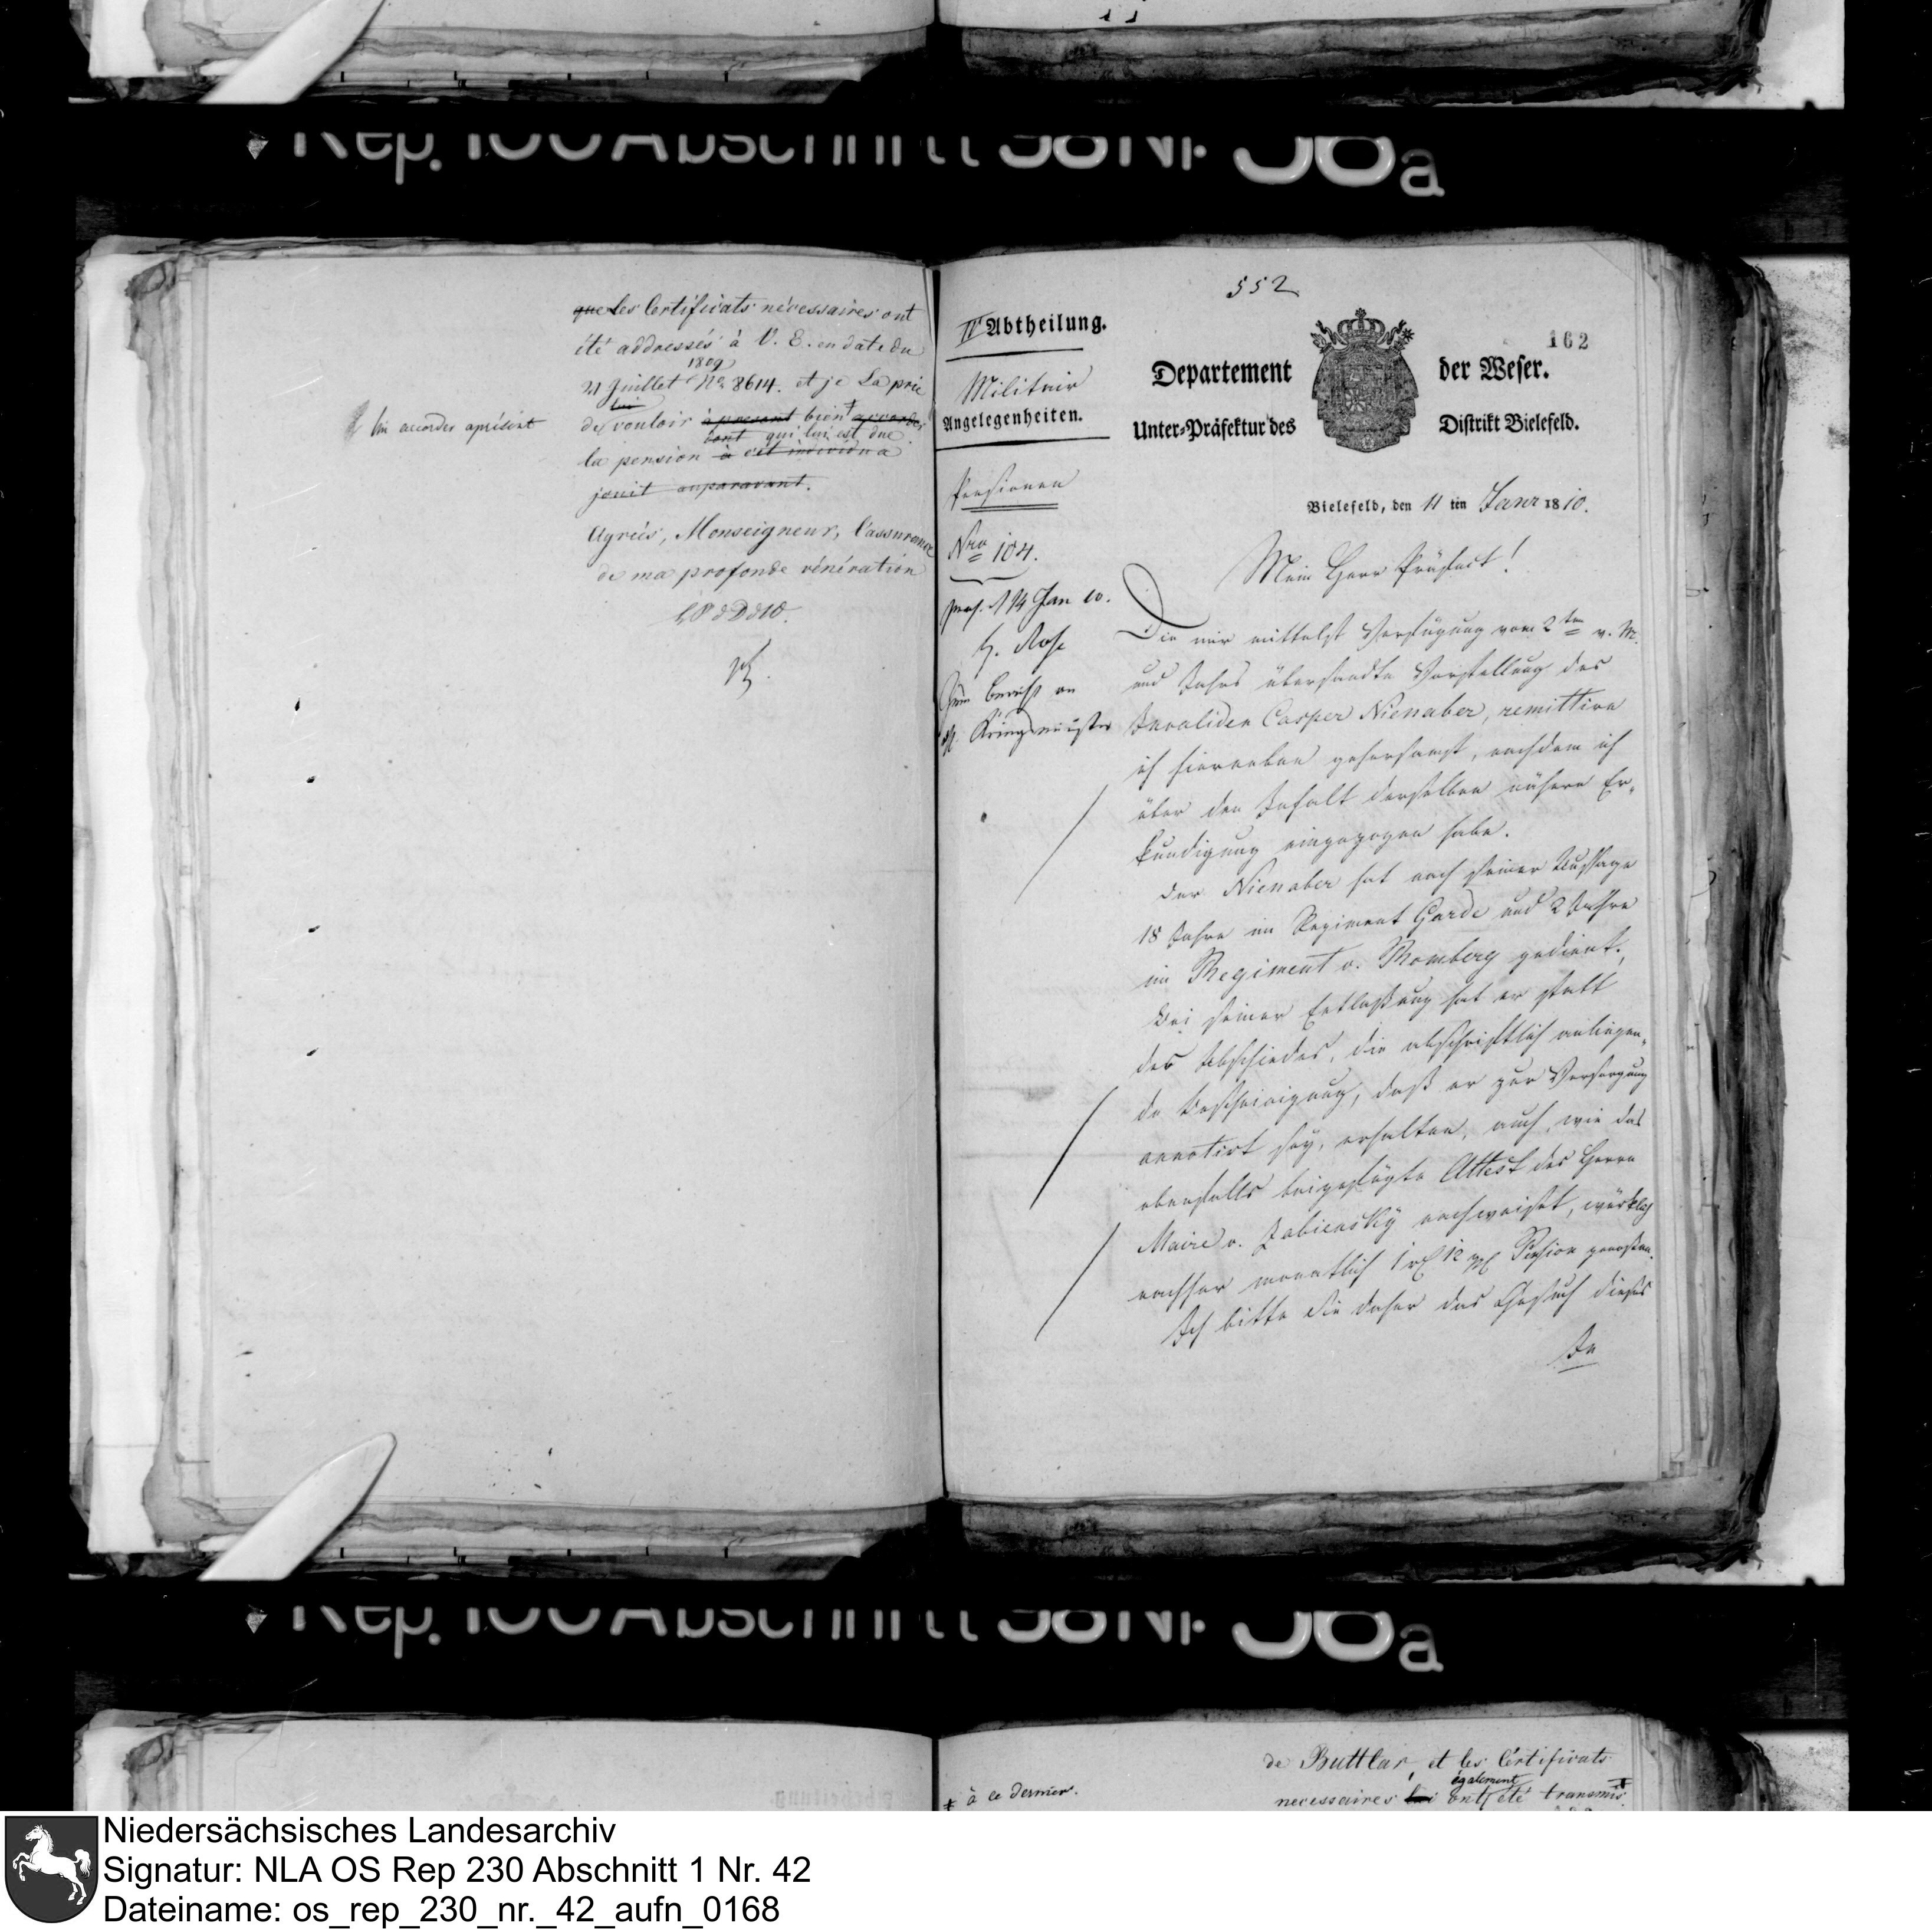 Rep. 100 Abschnitt 38 Nr 38a
que les Certificats nécessaires ont
été addressés à V. E. en date du
1809
21 Juillet No 8614. et je La prie
lui
de vouloir à present bien accorder
lui accorder aprésent
dont qui lui est due
la pension à cet individu a
jouit auparavant.
Agréés, Monseigneur, l'assurance
de ma profonde vénération
552
162
II Abtheilung.
Militair
Angelegenheiten.
Departement der Weser.
Unter-Präfektur des Distrikt Bielefeld.
Pensionen
Bielefeld, den 11 ten Janr 1810.
Nro 104.
praes. 14 Jan 10.
H. Rose
Zum Bericht an
Kriegsminister
Mein Herr Präfect!
Die mir mittelst Verfügung vom 2ten v. M.
und Jahrs übersandte Vorstellung des
Invaliden Casper Nienaber, remittire
ich hierneben gehorsamst, nachdem ich
über den Inhalt derselben nähere Er-
kundigung eingezogen habe.
Der Nienaber hat nach seiner Aussage
18 Jahre im Regiment Garde und 2 Jahre
im Regiment v. Romberg gedient.
Bei seiner Entlaßung hat er statt
des Abschiedes, die abschriftlich anliegen-
de Bescheinigung, daß er zur Versorgung
annotirt sey, erhalten, auch, wie das
ebenfalls beigefügte Attest des Herrn
Maire v. Zabiensky nachweiset, würklich
nachher monatlich 1 rf 12 Pension genoßen.
Ich bitte Sie daher das Gesuch dieses
In
Rep. 100 Abschnitt 38 Nr 38a
de Buttlar, et les Certificats
également
à ce dernier.
necessaires lui ont été transmis
Niedersächsisches Landesarchiv
Signatur: NLA OS Rep 230 Abschnitt 1 Nr. 42
Dateiname: os_rep_230_nr._42_aufn_0168